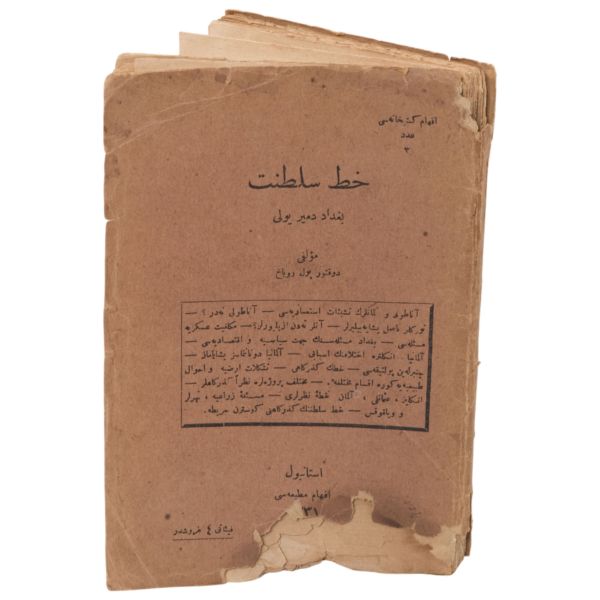 افهام كتبخانه‌سی
عدد
٣
خط سلطنت
بغداد دمیر یولی
مؤلفی
دوقتور پول روباخ
آناطولی و تشبثات استعماریه‌سی — آناطولی نه‌در؟ —
تورکلر ناصل یشایه‌بیلیرلر — آنلر نه‌دن ازیلیورلر؟ — مكلفیت عسكریه
مسئله‌سی — بغداد مسئله‌سنك جهت سیاسیه و اقتصادیه‌سی —
آلمانیا، انكلتره اختلافنك اسبابی — آلمانیا دونانماسز یشایاماز —
چنبرلەین پولتیقه‌سی — خطك كذركاهی — تشكلات ارضیه و احوال
طبیعیه‌یه كوره اقسام مختلفه — مختلف پروژه‌لره نظراً كذركاهلر —
انكلیز، عثمانلی، آلمان نقطۀ نظرلری — مسئلۀ زراعیه، نهرلر
و ویلقوقس — خط سلطنتك كذركاهنی كوسترن خریطه.
استانبول
افهام مطبعه‌سی
٣١
فیئاتی ٤ غروشدر